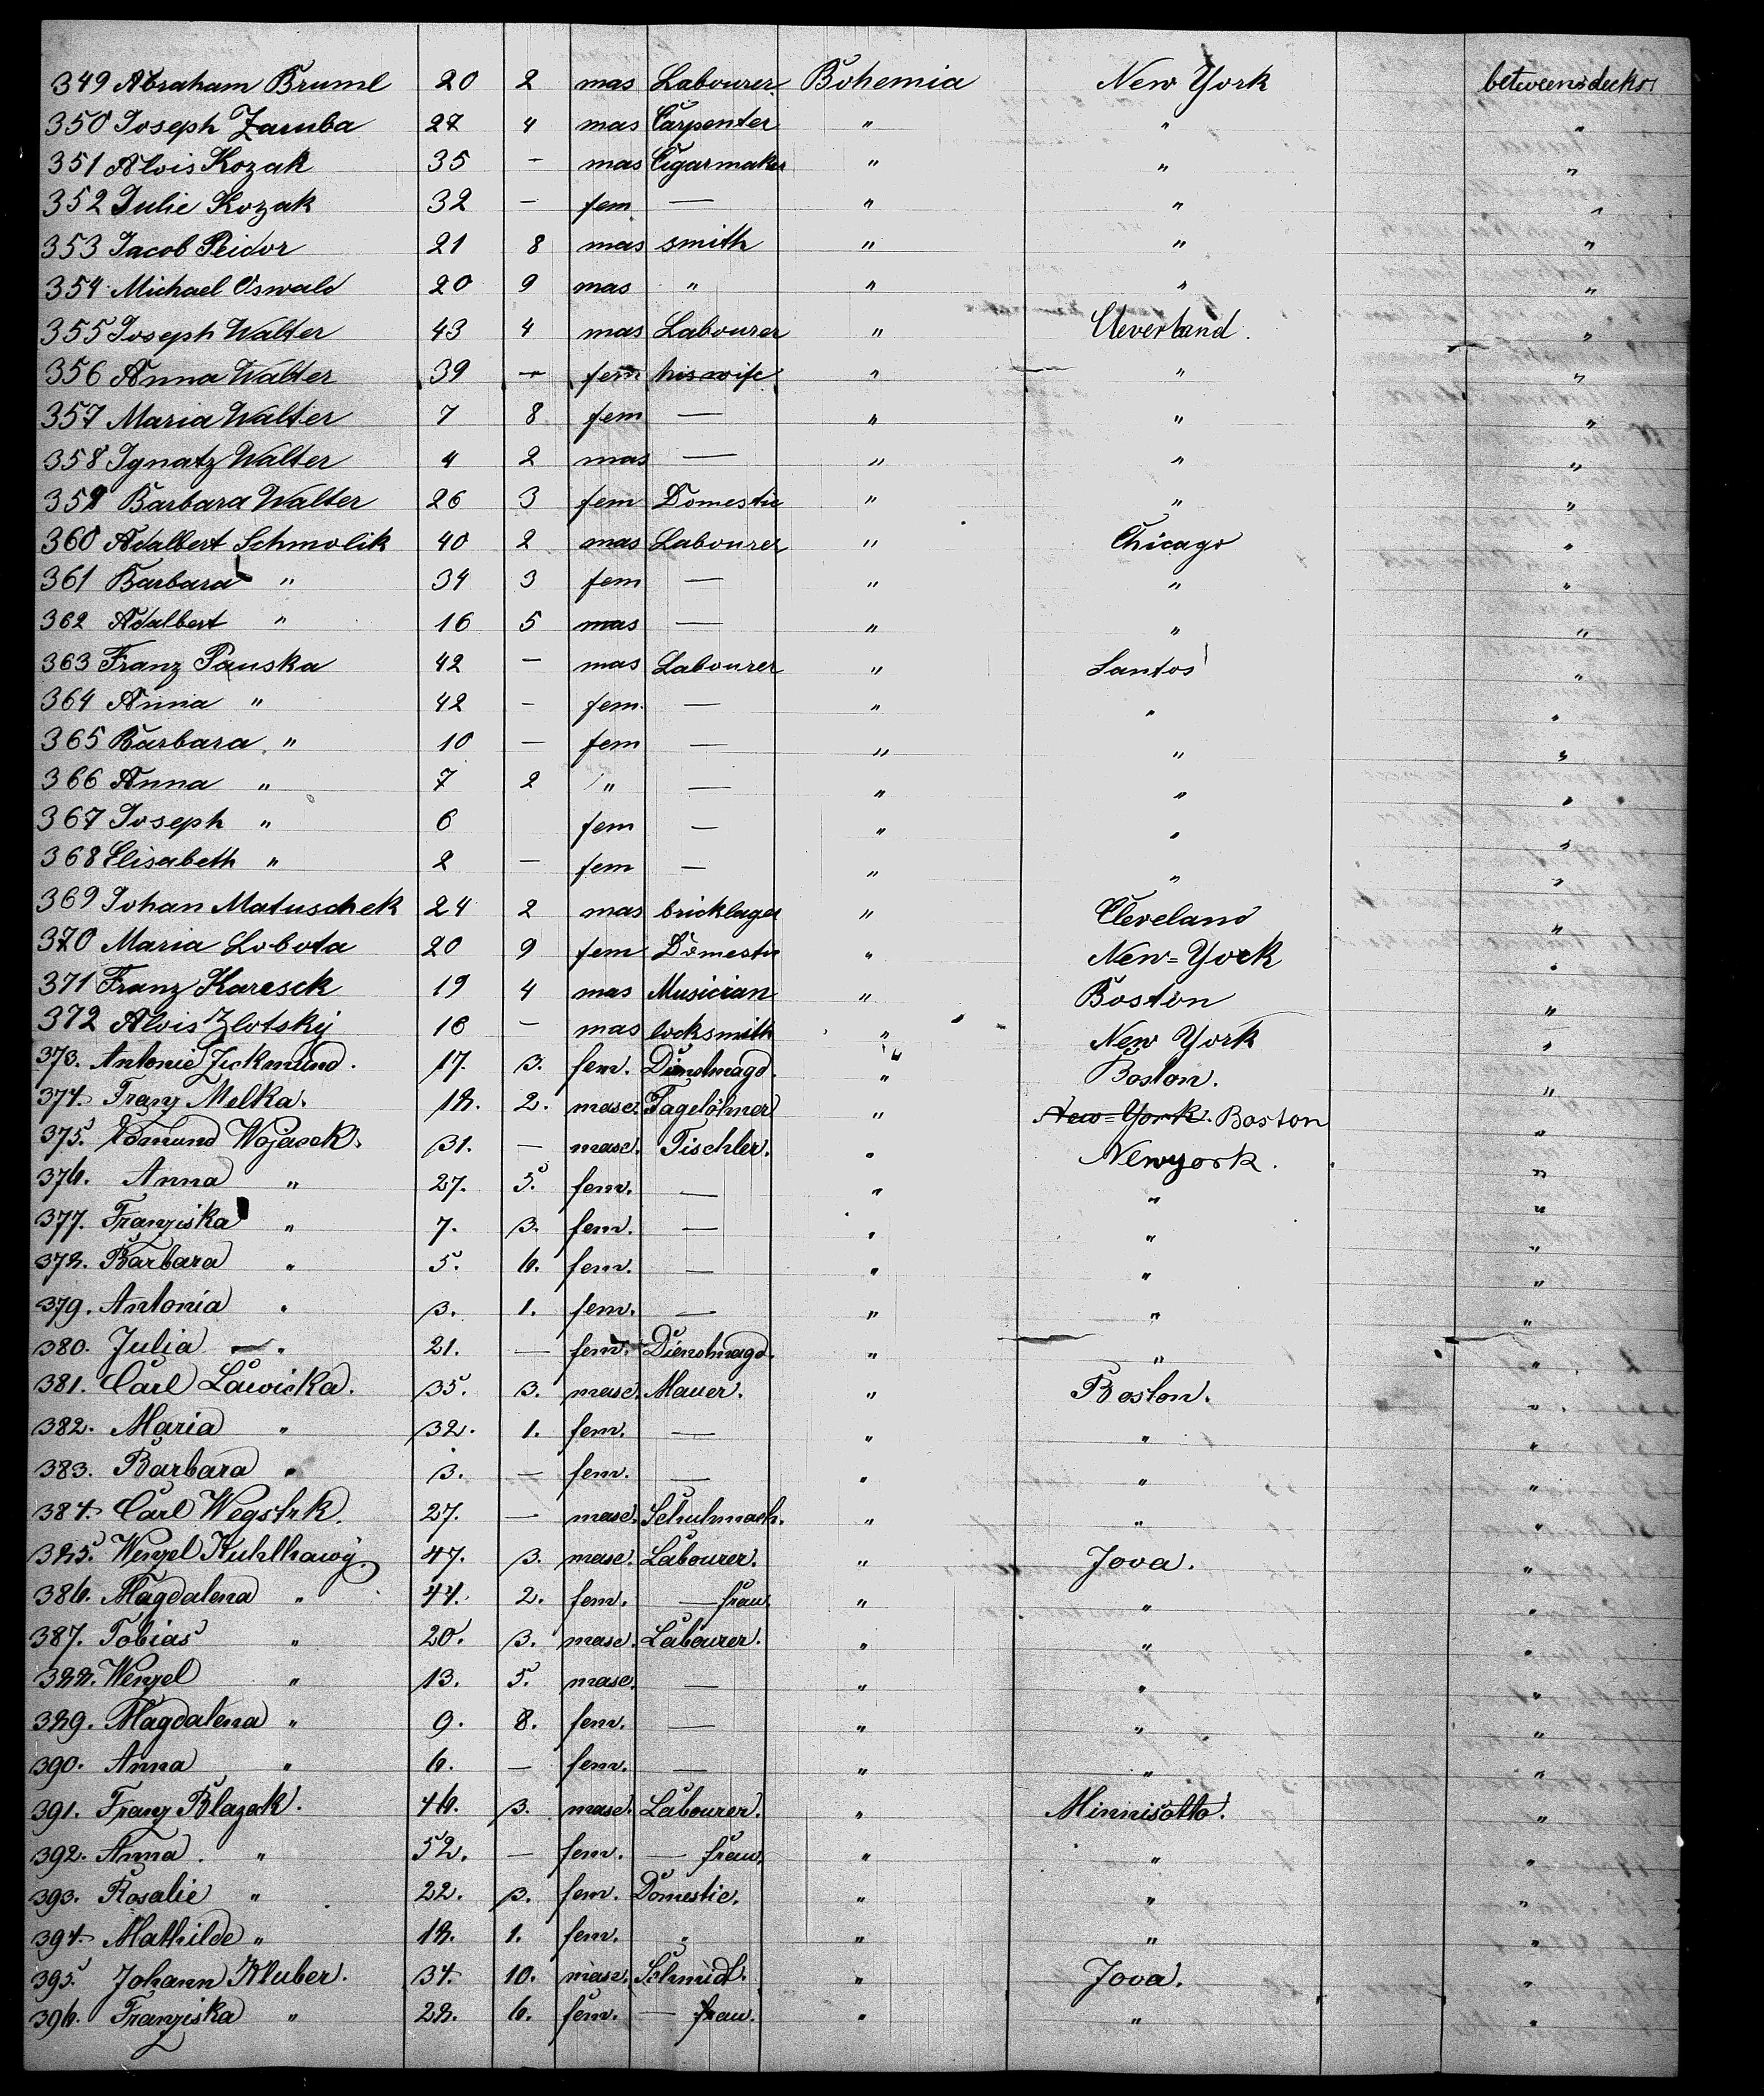 349 Abraham Bruml 20 2 mas Labourer Bohemia New York betweendecks
350 Joseph Zaruba 27 4 mas Carpenter " " "
351 Alois Kozak 35 - mas Cigarmaker " " "
352 Julie Kozak 32 - fem — " " "
353 Jacob Peidor 21 8 mas smith " " "
354 Michael Oswald 20 9 mas " " " "
355 Joseph Walter 43 4 mas Labourer " Cleverland. "
356 Anna Walter 39 - fem his wife " " "
357 Maria Walter 7 8 fem — " " "
358 Ignatz Walter 4 2 mas — " " "
359 Barbara Walter 26 3 fem Domestic " " "
360 Adalbert Schmolik 40 2 mas Labourer " Chicago "
361 Barbara " 34 3 fem — " " "
362 Adalbert " 16 5 mas — " " "
363 Franz Pauska 42 - mas Labourer " Santos "
364 Anna " 42 - fem. — " " "
365 Barbara " 10 - fem — " " "
366 Anna " 7 2 " — " " "
367 Joseph " 6 fem — " " "
368 Elisabeth " 2 - fem — " " "
369 Johan Matuschek 24 2 mas bricklager " Cleveland "
370 Maria Lobota 20 9 fem Domestic " New=York "
371 Franz Karesek 19 4 mas Musician " Boston "
372 Alois Zlotský 16 - mas locksmith " New York "
373. Antonie Zickmund. 17. 3. fem. Dienstmagd. " Boston. "
374. Franz Melka. 18. 2. masc. Tagelöhner " New=York. Boston "
375. Edmund Wojacek. 31. — masc. Tischler. " Newyork. "
376. Anna " 27. 5. fem. — " " "
377. Franziska " 7. 3. fem. — " " "
378. Barbara " 5. 6. fem. — " " "
379. Antonia " 3. 1. fem. — " " "
380. Julia — " 21. — fem. Dienstmagd. " " "
381. Carl Lawicka. 35. 3. masc. Mauer. " Boston. "
382. Maria " 32. 1. fem. — " " "
383. Barbara " 3. — fem. — " " "
384. Carl Wegstrk. 27. — masc. Schuhmach. " " "
385. Wenzel Kuhlhawý. 47. 3. masc. Labourer. " Jova. "
386. Magdalena " 44. 2. fem. — frau. " " "
387. Tobias " 20. 3. masc. Labourer. " " "
388. Wenzel " 13. 5. masc. — " " "
389. Magdalena " 9. 8. fem. — " " "
390. Anna " 6. — fem. — " " "
391. Franz Blazek. 46. 3. masc. Labourer. " Minnisotto. "
392. Anna. " 52. — fem. — frau. " " "
393. Rosalie " 22. 3. fem. Domestic. " " "
394. Mathilde " 18. 1. fem. " " " "
395. Johann Kluber. 34. 10. masc. Schmidt. " Jova. "
396. Franziska " 28. 6. fem. — frau. " " "